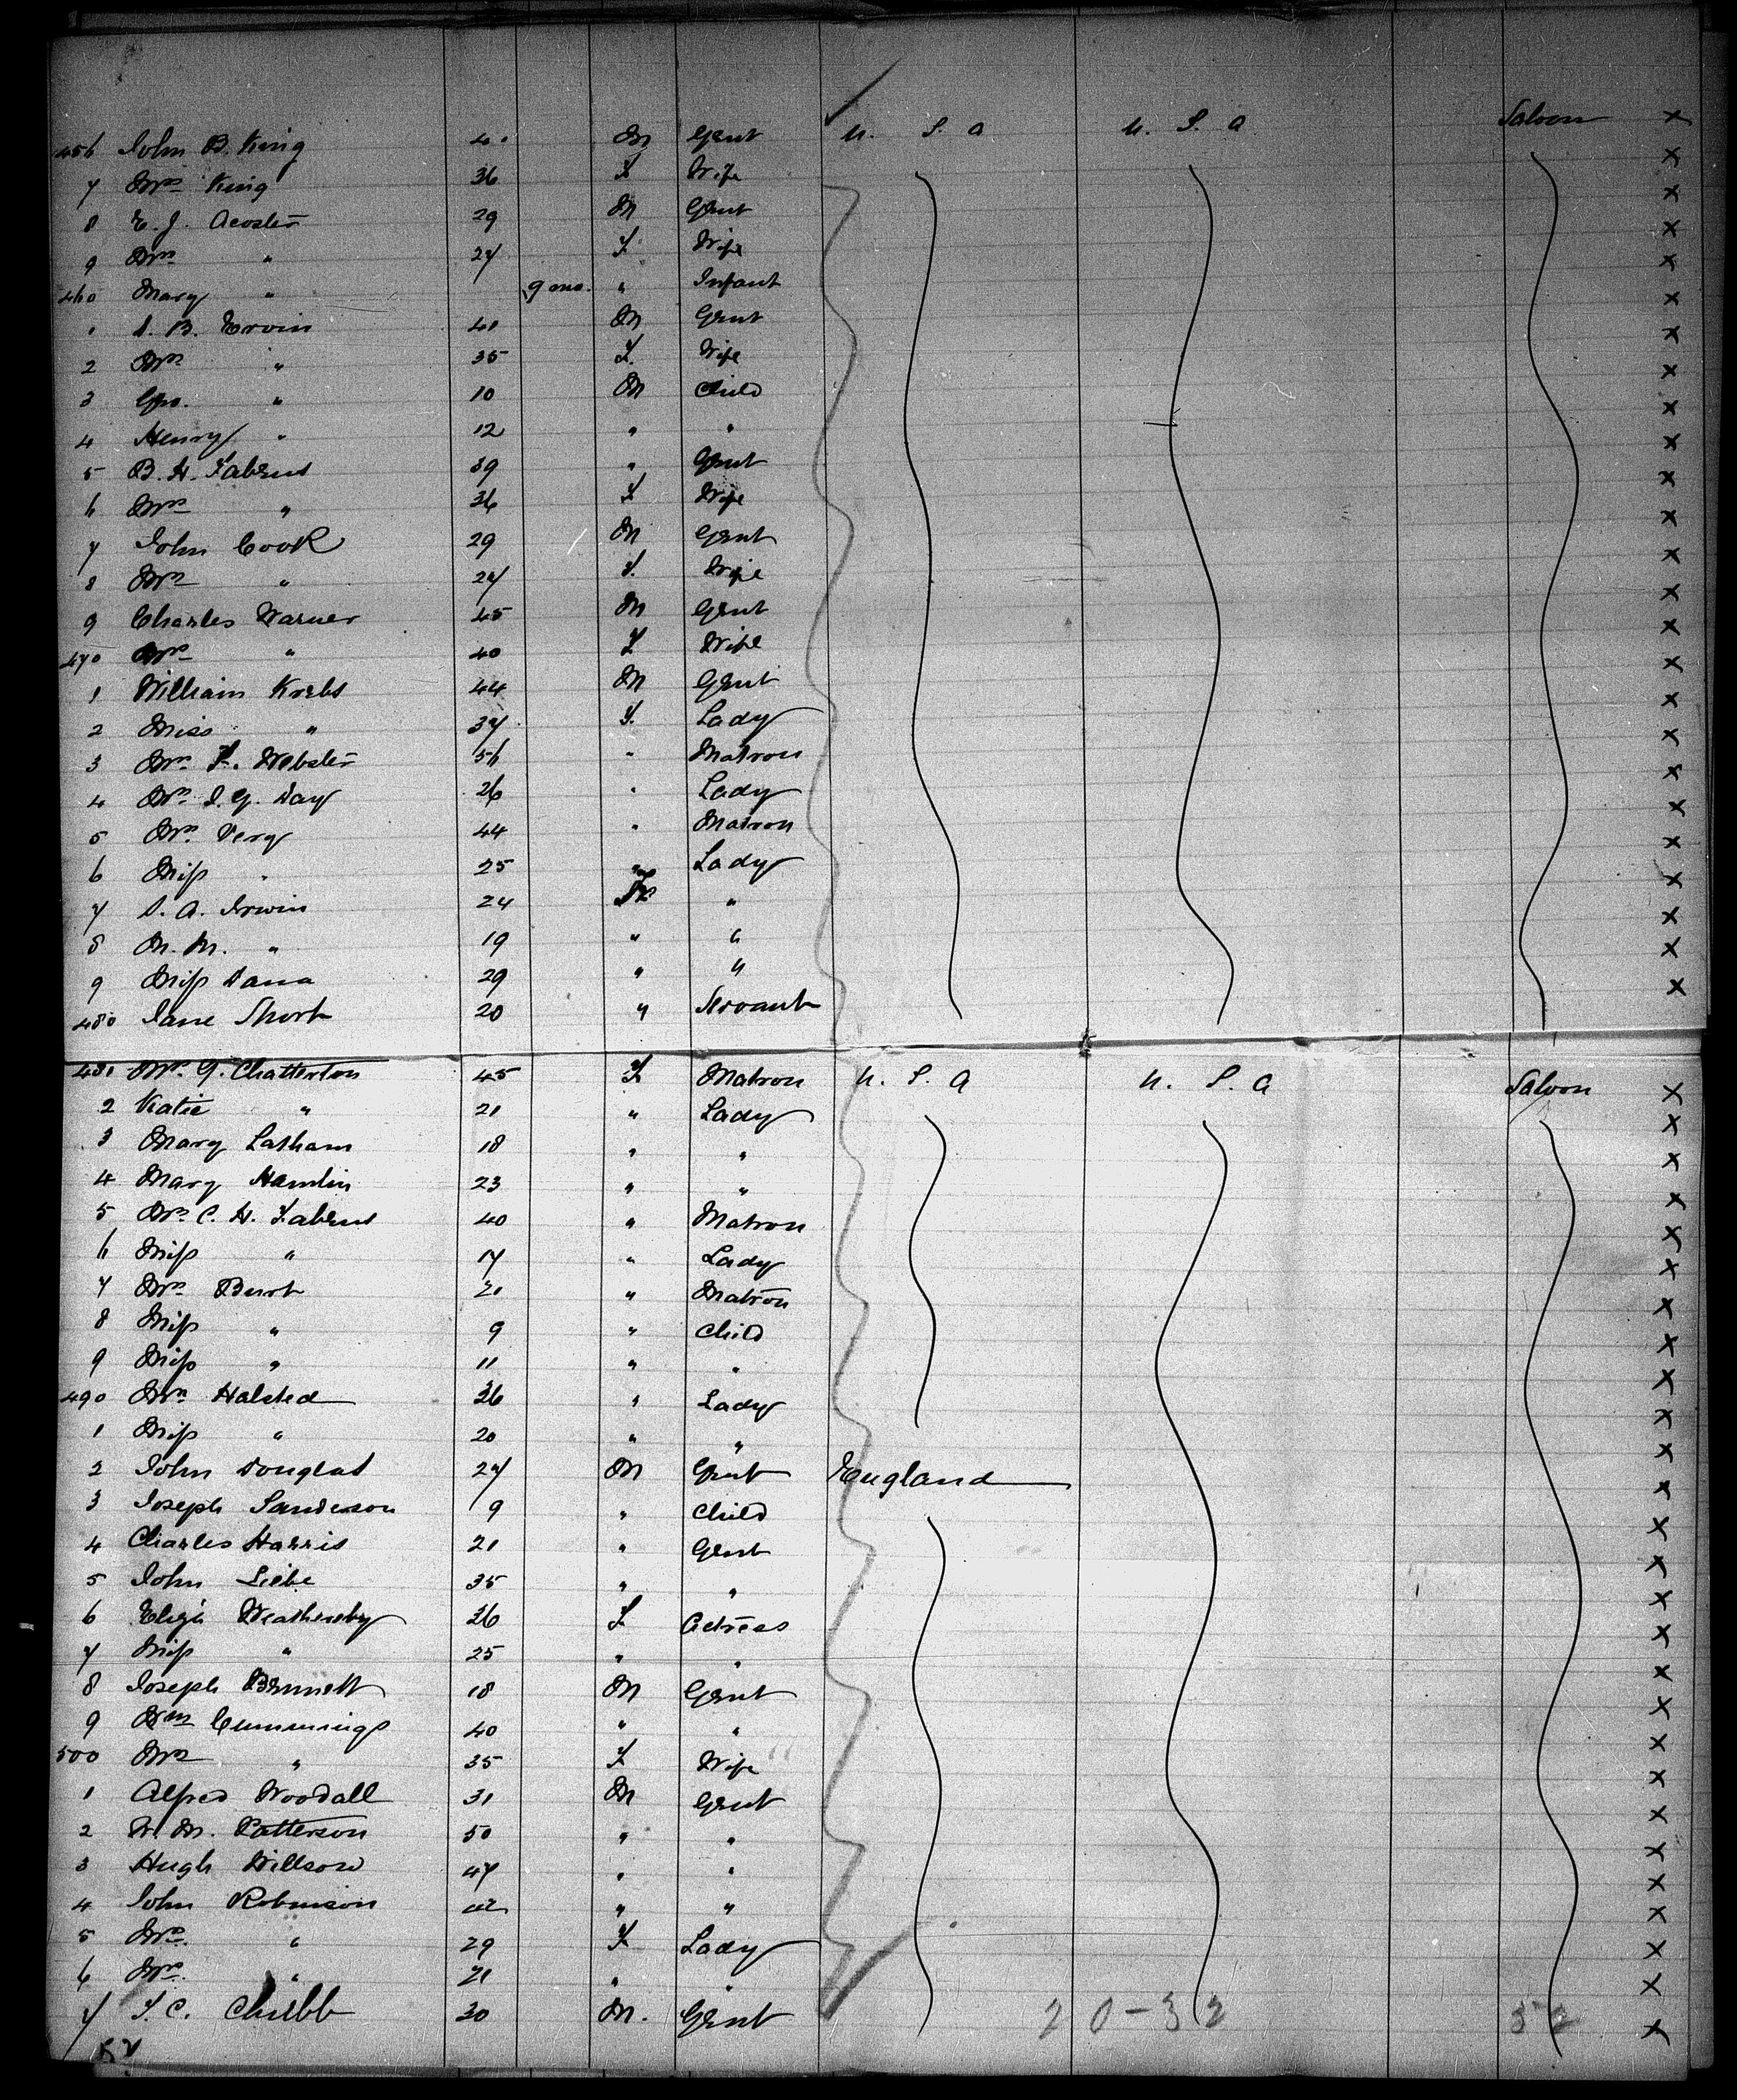 456 John B. King 40 M Gent U. S. A U. S. A Saloon x
7 Mrs King 36 F Wife x
8 E. J. Acoster 29 M Gent x
9 Mrs " 27 F Wife x
460 Mary " 9 mo. " Infant x
1 S. B. Ervin 41 M Gent x
2 Mrs " 35 F. Wife x
3 Geo. " 10 M Child x
4 Henry " 12 " " x
5 B. H. Fabens 39 " Gent x
6 Mrs " 36 F Wife x
7 John Cook 29 M Gent x
8 Mrs " 27 F. Wife x
9 Charles Warner 45 M Gent x
470 Mrs " 40 F Wife x
1 William Krebs 44 M Gent x
2 Miss " 37 F. Lady x
3 Mrs F. Webster 56 " Matron x
4 Mrs I. G. Day 26 " Lady x
5 Mrs Very 44 " Matron x
6 Miss " 25 " Lady x
7 S. A. Irwin 24 " x
8 M. M. " 19 " " x
9 Miss Dana 29 " " x
480 Jane Short 20 " Servant x
481 Mrs G. Chatterton 45 F Matron U. S. A U. S. A Saloon x
2 Katie " 21 " Lady x
3 Mary Latham 18 " " x
4 Mary Hamlin 23 " " x
5 Mrs C. H. Fabens 40 " Matron x
6 Miss " 17 " Lady x
7 Mrs Burt 21 " Matron x
8 Miss " 9 " Child x
9 Miss " 11 " " x
490 Mrs Halsted 36 " Lady x
1 Miss " 20 " " x
2 John Douglas 27 M Gent England x
3 Joseph Sanderson 9 " Child x
4 Charles Harris 21 " Gent x
5 John Liebe 35 " " x
6 Eliza Weathersby 26 F Actress x
7 Miss " 25 " " x
8 Joseph Bennett 18 M Gent x
9 Wm Cummings 40 " " x
500 Mrs " 35 F Wife x
1 Alfred Woodall 31 M Gent x
2 W. M. Patterson 50 " " x
3 Hugh Willson 47 " " x
4 John Robinson " " x
5 Mrs. " 29 F Lady x
6 Mrs. " 21 " " x
7 F. C. Chubb 30 M. Gent 20-32 52 x
52